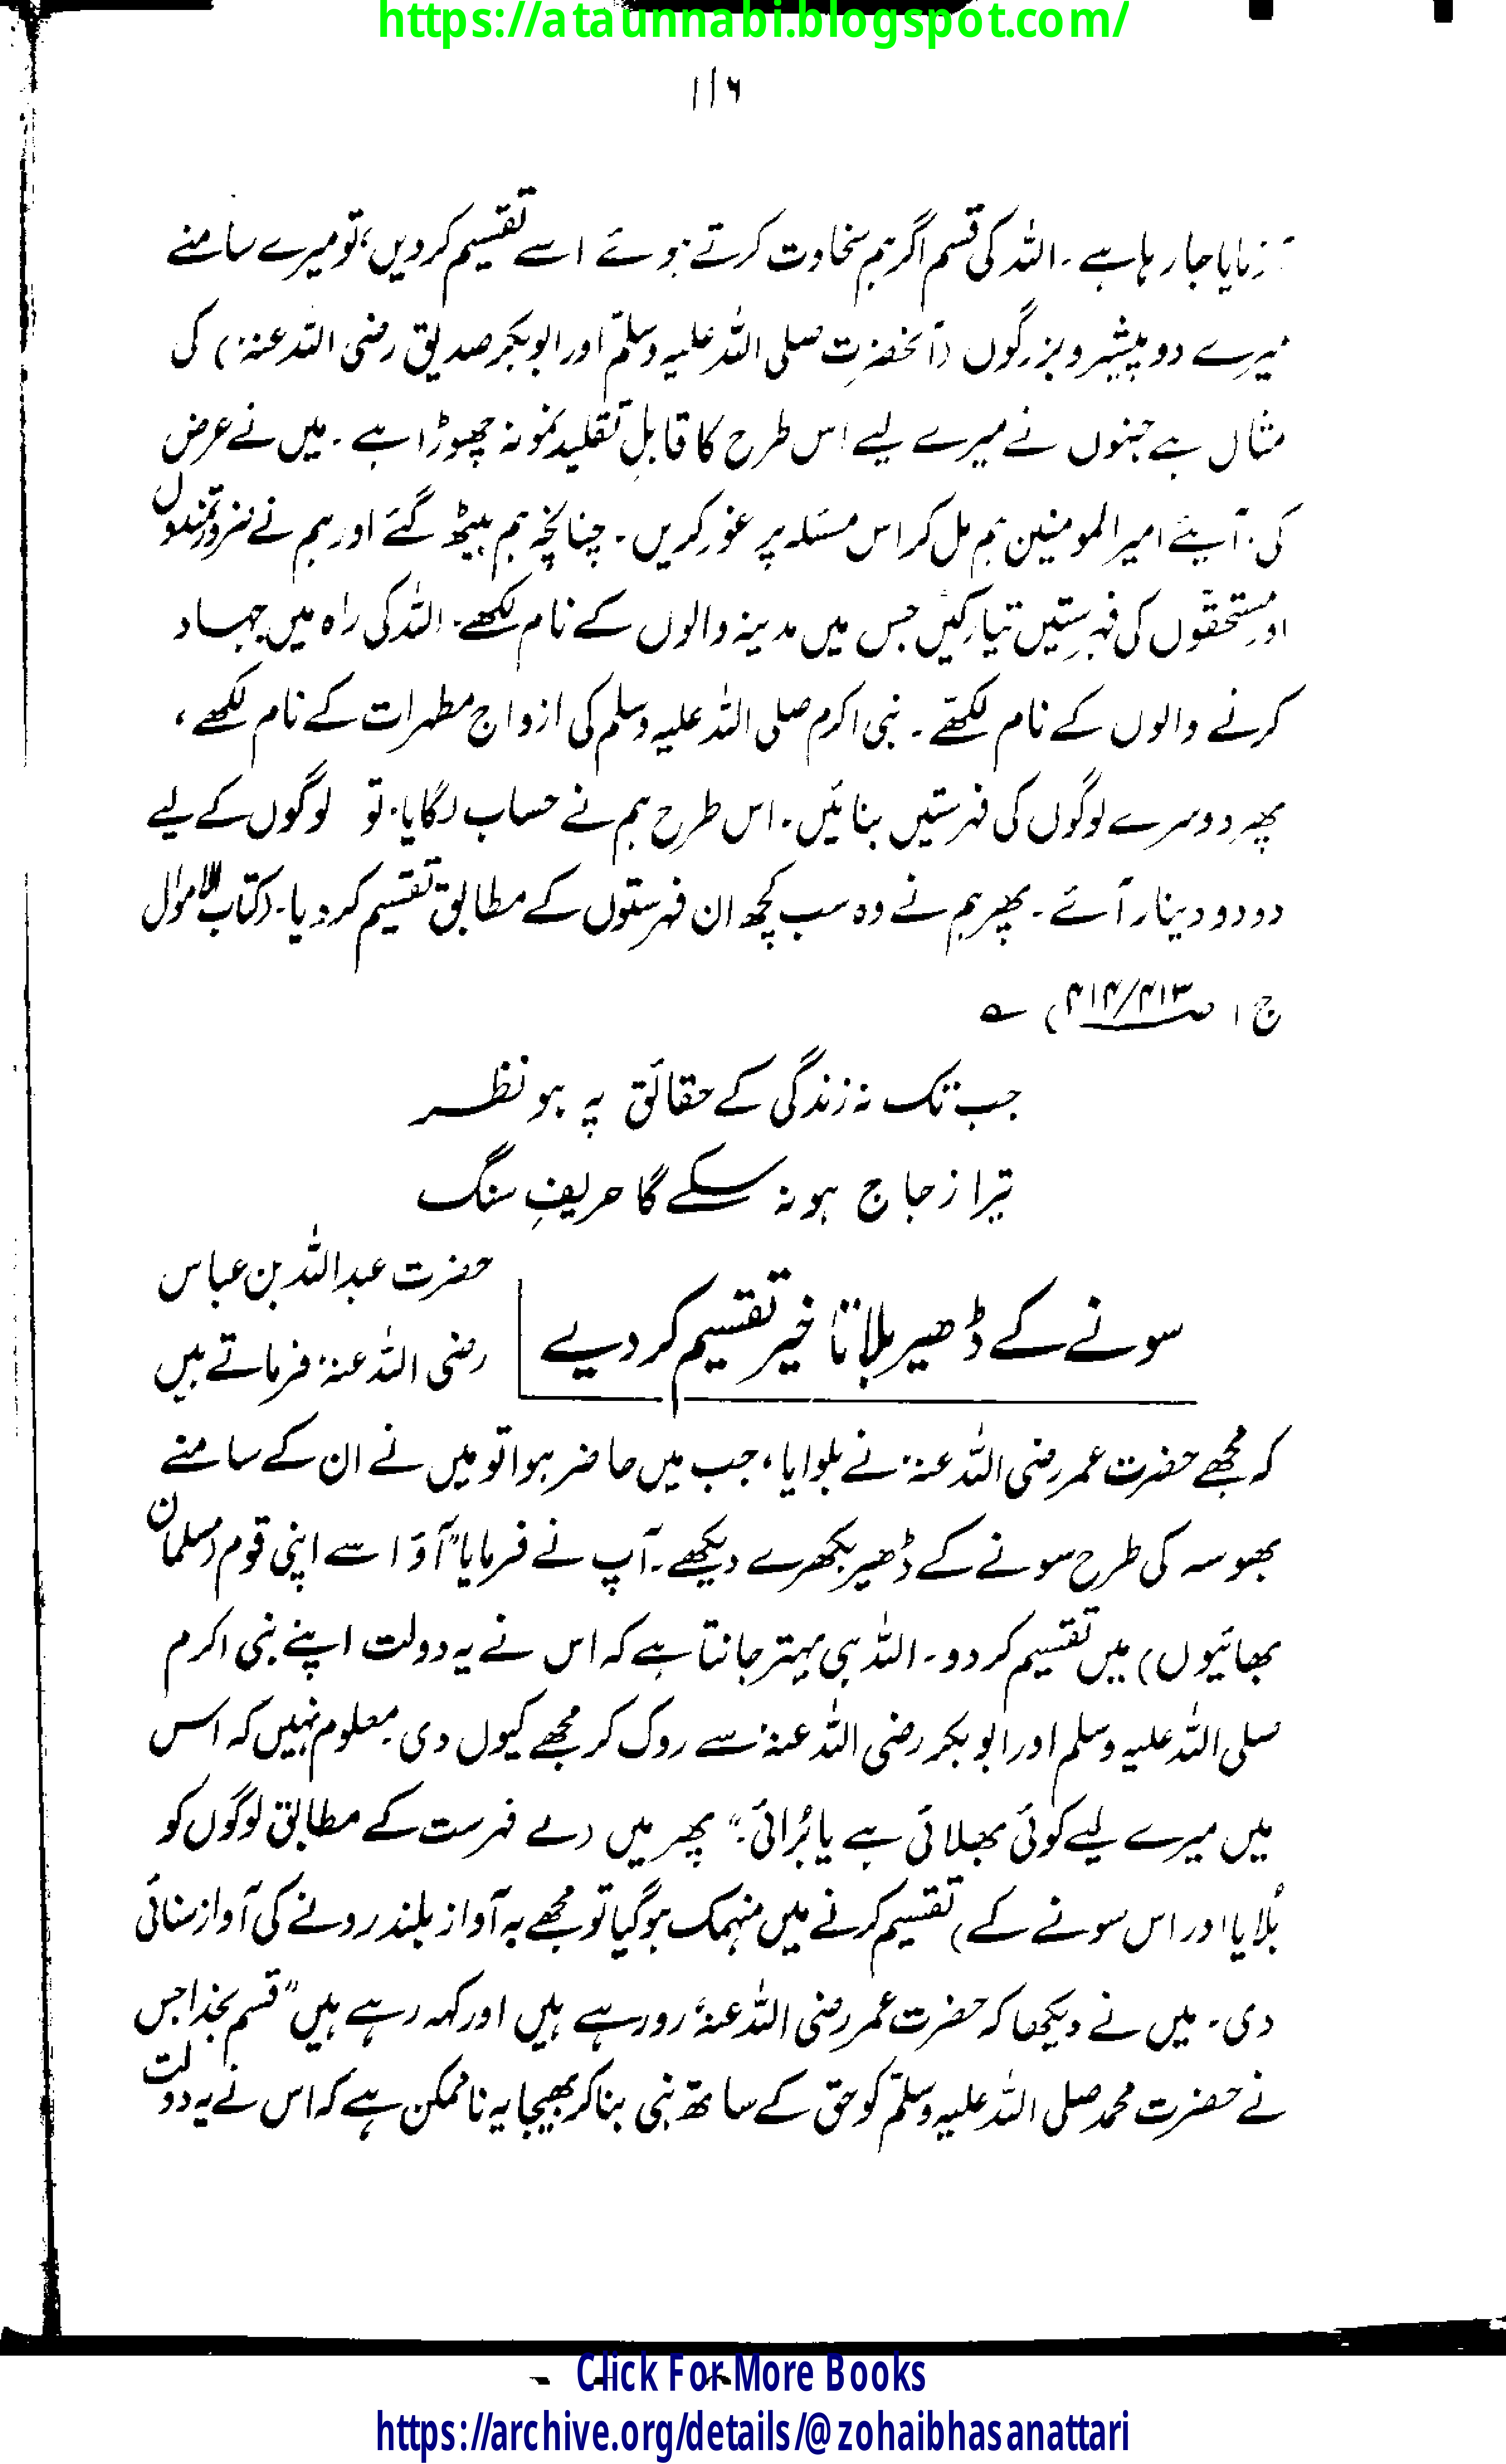 https://ataunnabi.blogspot.com/
۱۱۶
آزمایا جا رہا ہے۔ اللہ کی قسم اگر ہم سخاوت کرتے ہوئے اسے تقسیم کردیں، تو میرے سامنے
میرے دو پیشرو بزرگوں (آنحضرت صلی اللہ علیہ وسلم اور ابوبکر صدیق رضی اللہ عنہ) کی
مثال ہے جنہوں نے میرے لیے اس طرح کا قابلِ تقلید نمونہ چھوڑا ہے۔ میں نے عرض
کی۔ آیئے امیر المومنین ہم مل کر اس مسئلہ پر غور کریں۔ چنانچہ ہم بیٹھ گئے اور ہم نے ضرورتمندوں
اور مستحقوں کی فہرستیں تیار کیں جس میں مدینہ والوں کے نام لکھے۔ اللہ کی راہ میں جہاد
کرنے والوں کے نام لکھے۔ نبی اکرم صلی اللہ علیہ وسلم کی ازواج مطہرات کے نام لکھے،
پھر دوسرے لوگوں کی فہرستیں بنائیں۔ اس طرح ہم نے حساب لگایا۔ تو لوگوں کے لیے
دو دو دینار آئے۔ پھر ہم نے وہ سب کچھ ان فہرستوں کے مطابق تقسیم کردیا۔ (کتاب الاموال
ج ۱ ص ۴۱۴/۴۱۳) ؎
جب تک نہ زندگی کے حقائق پہ ہو نظر
تیرا زجاج ہو نہ سکے گا حریفِ سنگ
سونے کے ڈھیر بلا تاخیر تقسیم کر دیے
حضرت عبداللہ بن عباس
رضی اللہ عنہ فرماتے ہیں
کہ مجھے حضرت عمر رضی اللہ عنہ نے بلوایا، جب میں حاضر ہوا تو میں نے ان کے سامنے
بھوسہ کی طرح سونے کے ڈھیر بکھرے دیکھے۔ آپ نے فرمایا "آؤ اسے اپنی قوم (مسلمان
بھائیوں) میں تقسیم کردو۔ اللہ ہی بہتر جانتا ہے کہ اس نے یہ دولت اپنے نبی اکرم
صلی اللہ علیہ وسلم اور ابوبکر رضی اللہ عنہ سے روک کر مجھے کیوں دی۔ معلوم نہیں کہ اس
میں میرے لیے کوئی بھلائی ہے یا بُرائی۔" پھر میں دے فہرست کے مطابق لوگوں کو
بُلایا اور اس سونے کے) تقسیم کرنے میں منہمک ہوگیا تو مجھے بہ آواز بلند رونے کی آواز سنائی
دی۔ میں نے دیکھا کہ حضرت عمر رضی اللہ عنہ رو رہے ہیں اور کہہ رہے ہیں "قسم بخدا جس
نے حضرت محمد صلی اللہ علیہ وسلم کو حق کے ساتھ نبی بنا کر بھیجا یہ ناممکن ہے کہ اس نے یہ دولت
Click For More Books
https://archive.org/details/@zohaibhasanattari